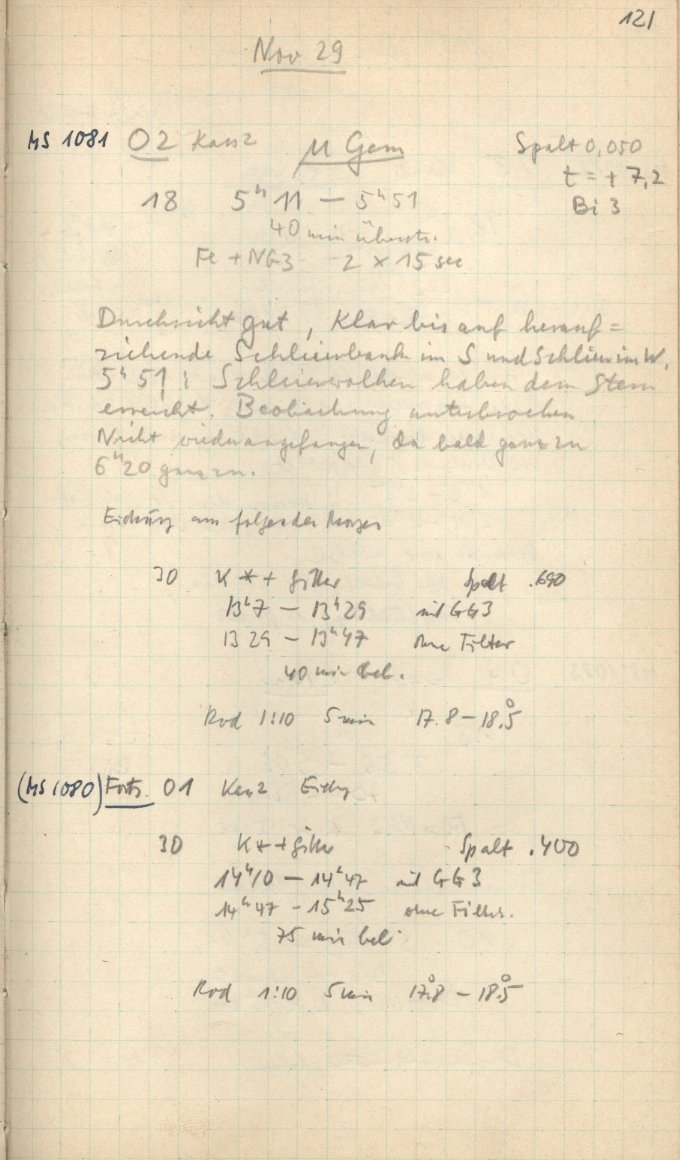 121
Nov 29
MS 1081 O2 Kass2 μ Gem Spalt 0,050
t = + 7,2
18 5ʰ11 — 5ʰ51 Bi 3
40 min überstr.
Fe + NG3 2 × 15 sec
Durchsicht gut, Klar bis auf herauf=
ziehende Schleierbank im S und Schlieren im W.
5ʰ51 : Schleierwolken haben den Stern
erreicht. Beobachtung unterbrochen
Nicht wieder angefangen, da bald ganz zu
6ʰ20 ganz zu.
Eichung am folgenden Morgen
30 K * + Gitter Spalt .690
13ʰ7 — 13ʰ29 mit GG3
13 29 — 13ʰ47 ohne Filter
40 min bel.
Rod 1:10 5 min 17.8 — 18.°5
(MS 1080) Forts. O1 Kas2 Eichg
30 K * + Gitter Spalt .400
14ʰ10 — 14ʰ47 mit GG3
14ʰ47 - 15ʰ25 ohne Filter.
75 min bel.
Rod 1:10 5 min 17.°8 — 18.°5